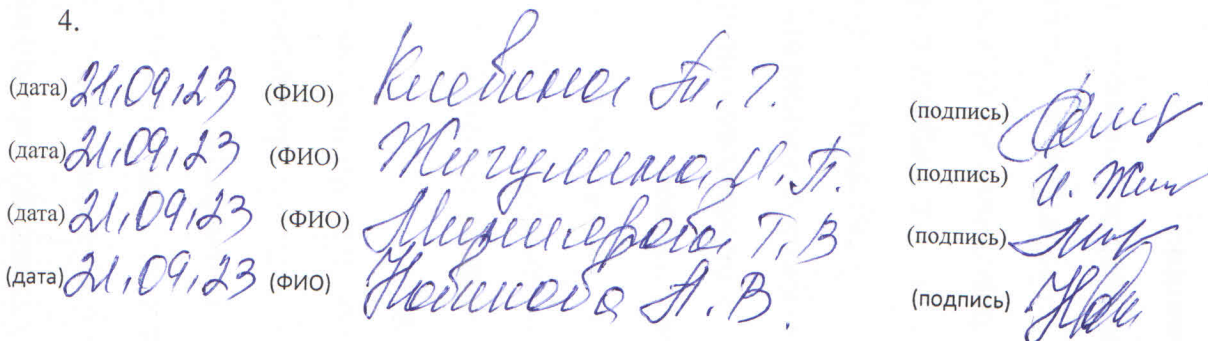 4.
(дата) 21.09.23 (ФИО) Т. (подпись)
(дата) 21.09.23 (ФИО) Жигулина И. П. (подпись) И. Жиг
(дата) 21.09.23 (ФИО) Т. В (подпись)
(дата) 21.09.23 (ФИО) Новикова А. В. (подпись)